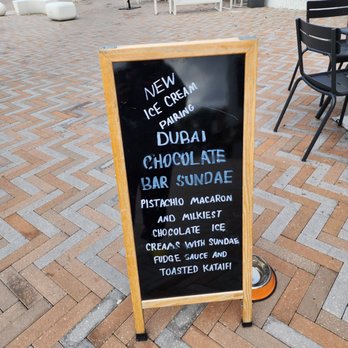 NEW
ICE CREAM
PAIRING
DUBAI
CHOCOLATE
BAR SUNDAE
PISTACHIO MACARON
AND MILKIEST
CHOCOLATE ICE
CREAMS WITH SUNDAE
FUDGE SAUCE AND
TOASTED KATAIFI